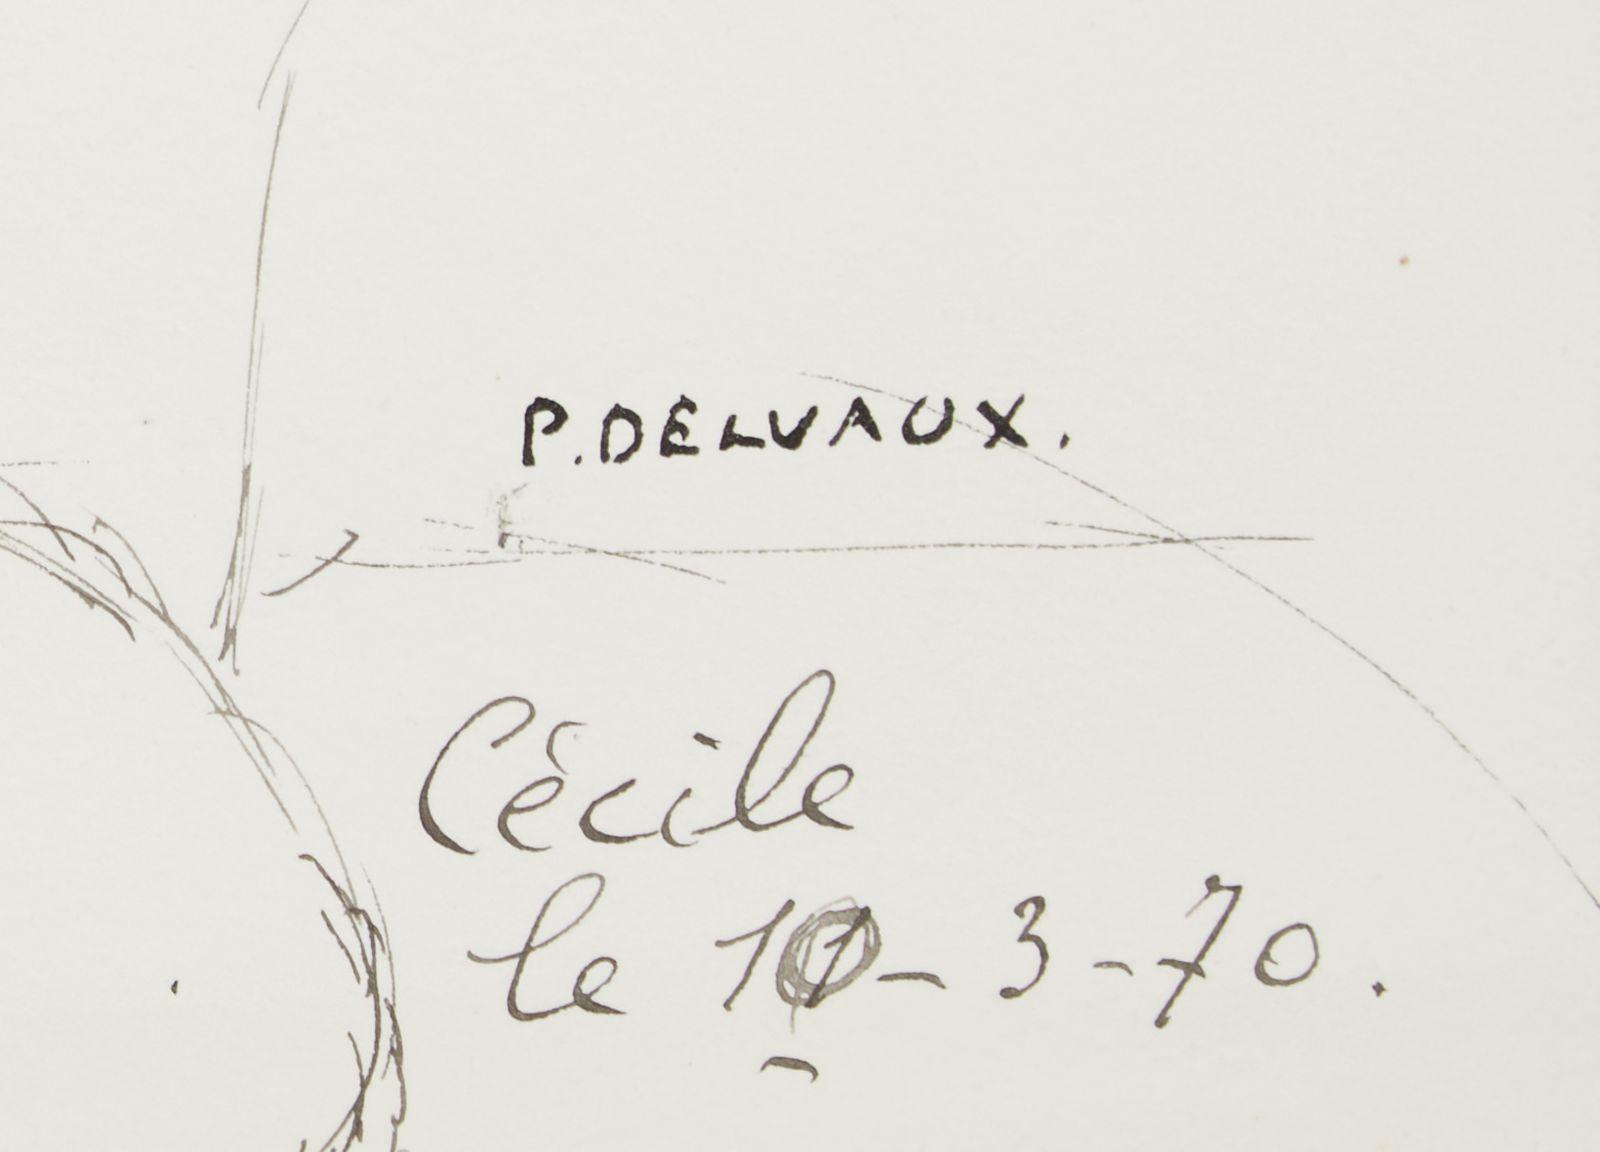 P. DELVAUX.
Cécile
le 10-3-70.